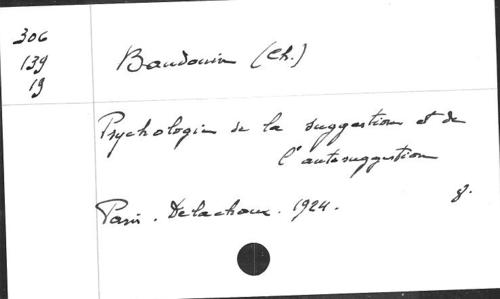 306
139
19
Baudouin (Ch.)
Psychologie de la suggestion et de
l'autosuggestion
Paris. Delachaux. 1924. 8.